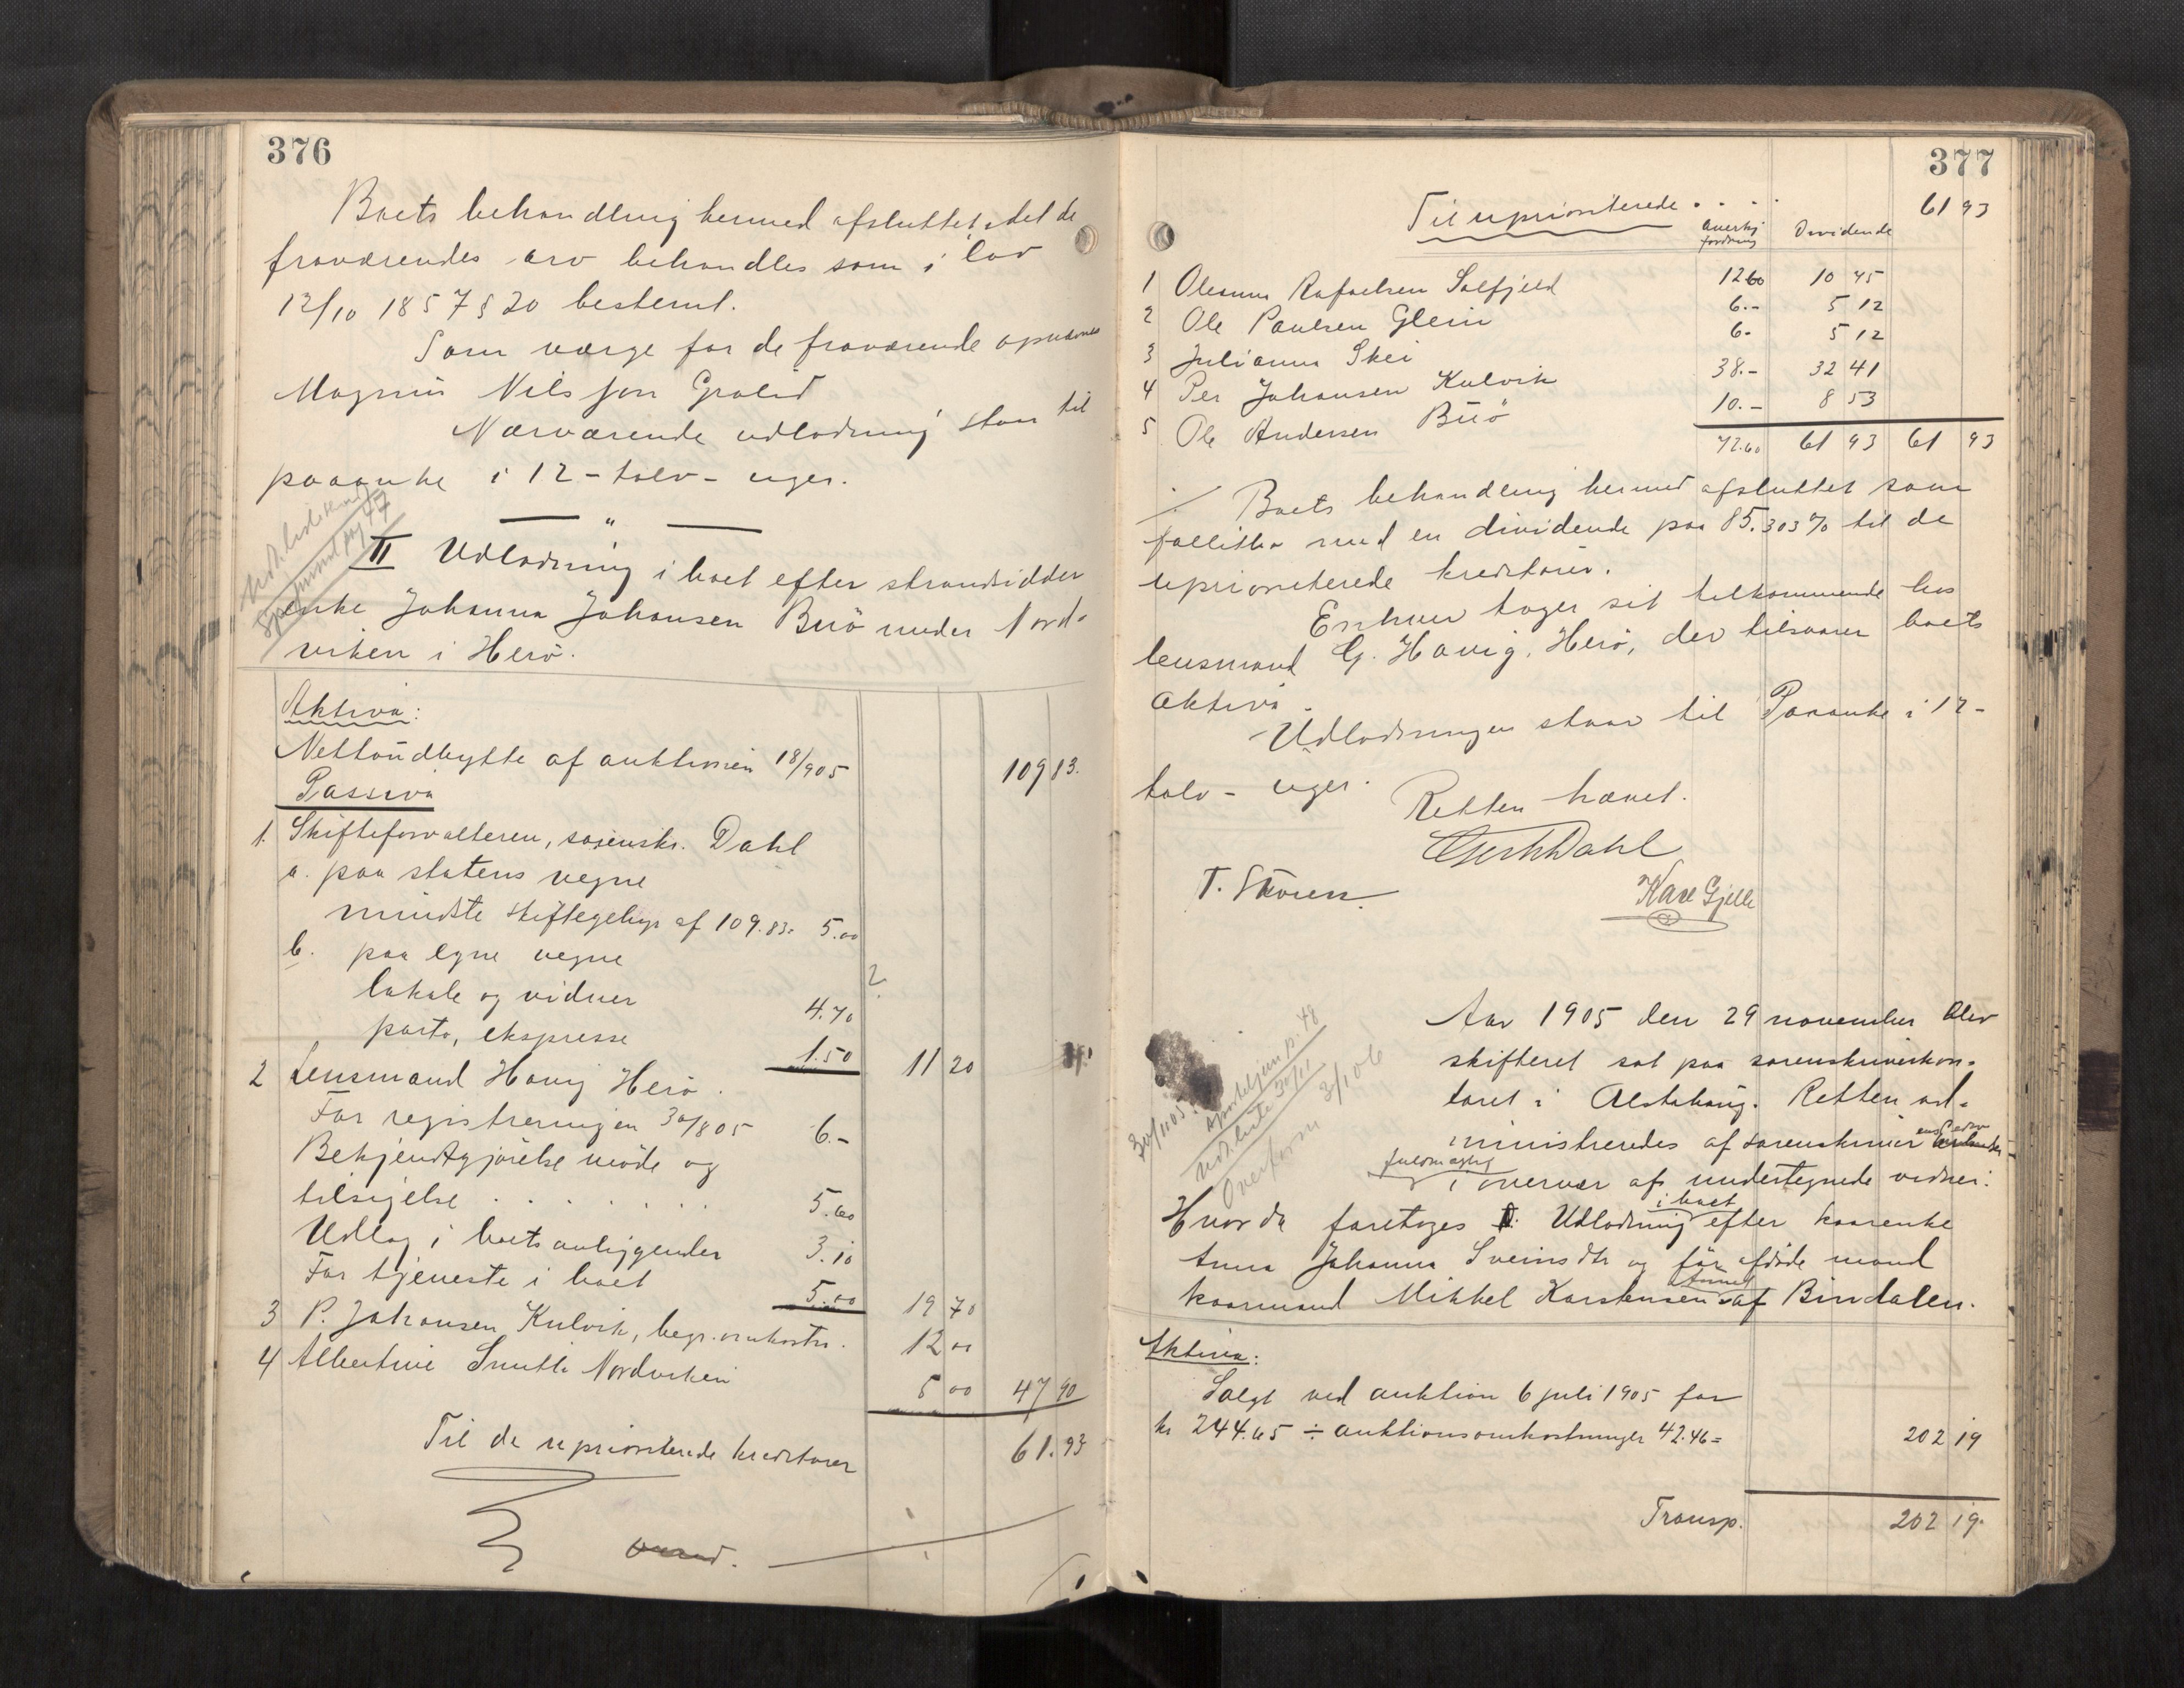 376
Boets behandling hermed afsluttet, idet de
fraværendes arv behandles som i lov
12/10 1857 § 20 bestemt.
Som værge for de fraværende opnævnes
Magnus Nilsson Gralid
Nærværende udlodning staar til
paaanke i 12 - tolv - uger.
II Udlodning i boet efter strandsidder
enke Johanna Johansen Buø under Nord-
viken i Herø.
Aktiva:
Nettoudbytte af auktionen 18/9 05 109 83.
Passiva
1. Skifteforvalteren, sorenskr. Dahl
a. paa statens vegne
mindste skiftegebyr af 109.83. 5.00
b. paa egne vegne 2.
lokale og vidner 4.70
porto, ekspresse 1.50 11 20
2 Lensmand Havig Herø.
For registreringen 30/8 05 6.-
Bekjendtgjørelse møde og
tilsigelse . . . . . . 5.60
Udlæg i boets anliggender 3.10
For tjeneste i boet 5.00 19 70
3 P. Johansen Kulvik, begr. omkostn. 12 00
4 Albertine Smith Nordviken 5 00 47 90
Til de uprioriterede kreditorer 61.93
377
Til uprioriterede . . . . 61 93
Anerkj. fordring Dividende
1 Olesum Rafaelsen Salfjeld 12 60 10 45
2 Ole Paulsen Glein 6.- 5 12
3 Julianna Skei 6- 5 12
4 Per Johansen Kulvik 38.- 32 41
5 Ole Andersen Buø 10.- 8 53
72.60 61 93 61 93
Boets behandling hermed afsluttet som
fallitbo med en dividende paa 85.303 % til de
uprioriterede kreditorer.
Enhver tager sit tilkommende hos
lensmand G. Havig, Herø, der tilsvarer boets
aktiva.
Udlodningen staar til Paaanke i 12 -
tolv - uger.
Retten hævet.
Dahl
T. Støren. Karl Gjelle
Aar 1905 den 29 november blev
skifteret sat paa sorenskriverkon-
toret i Alstahaug. Retten ad-
ministreredes af sorenskriver
fuldmægtig
i overvær af undertegnede vidner:
i boet
Hvor da foretoges I. Udlodning efter kaarenke
Anna Johanna Sveinsdtr og før afdøde mand
kaarmand Mikkel Karstensen af Bindalen.
30/11 05
3/1 06
Aktiva:
Solgt ved auktion 6 juli 1905 for
kr 244.65 ÷ auktionsomkostninger 42.46 = 202 19
Transp. 202 19.